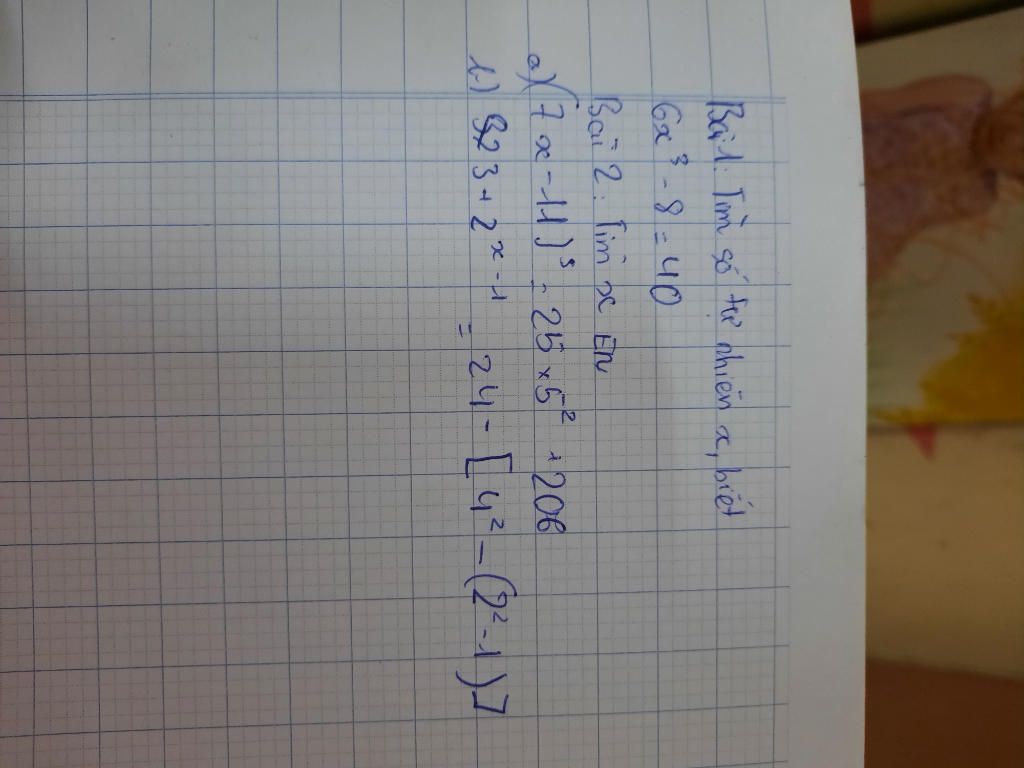 Bài 1: Tìm số tự nhiên x, biết
6x³ - 8 = 40
Bài 2: Tìm x ∈ N
a) (7x - 11)³ = 25 × 5² + 206
b) 3 + 2ˣ⁻¹ = 24 - [4² - (2² - 1)]